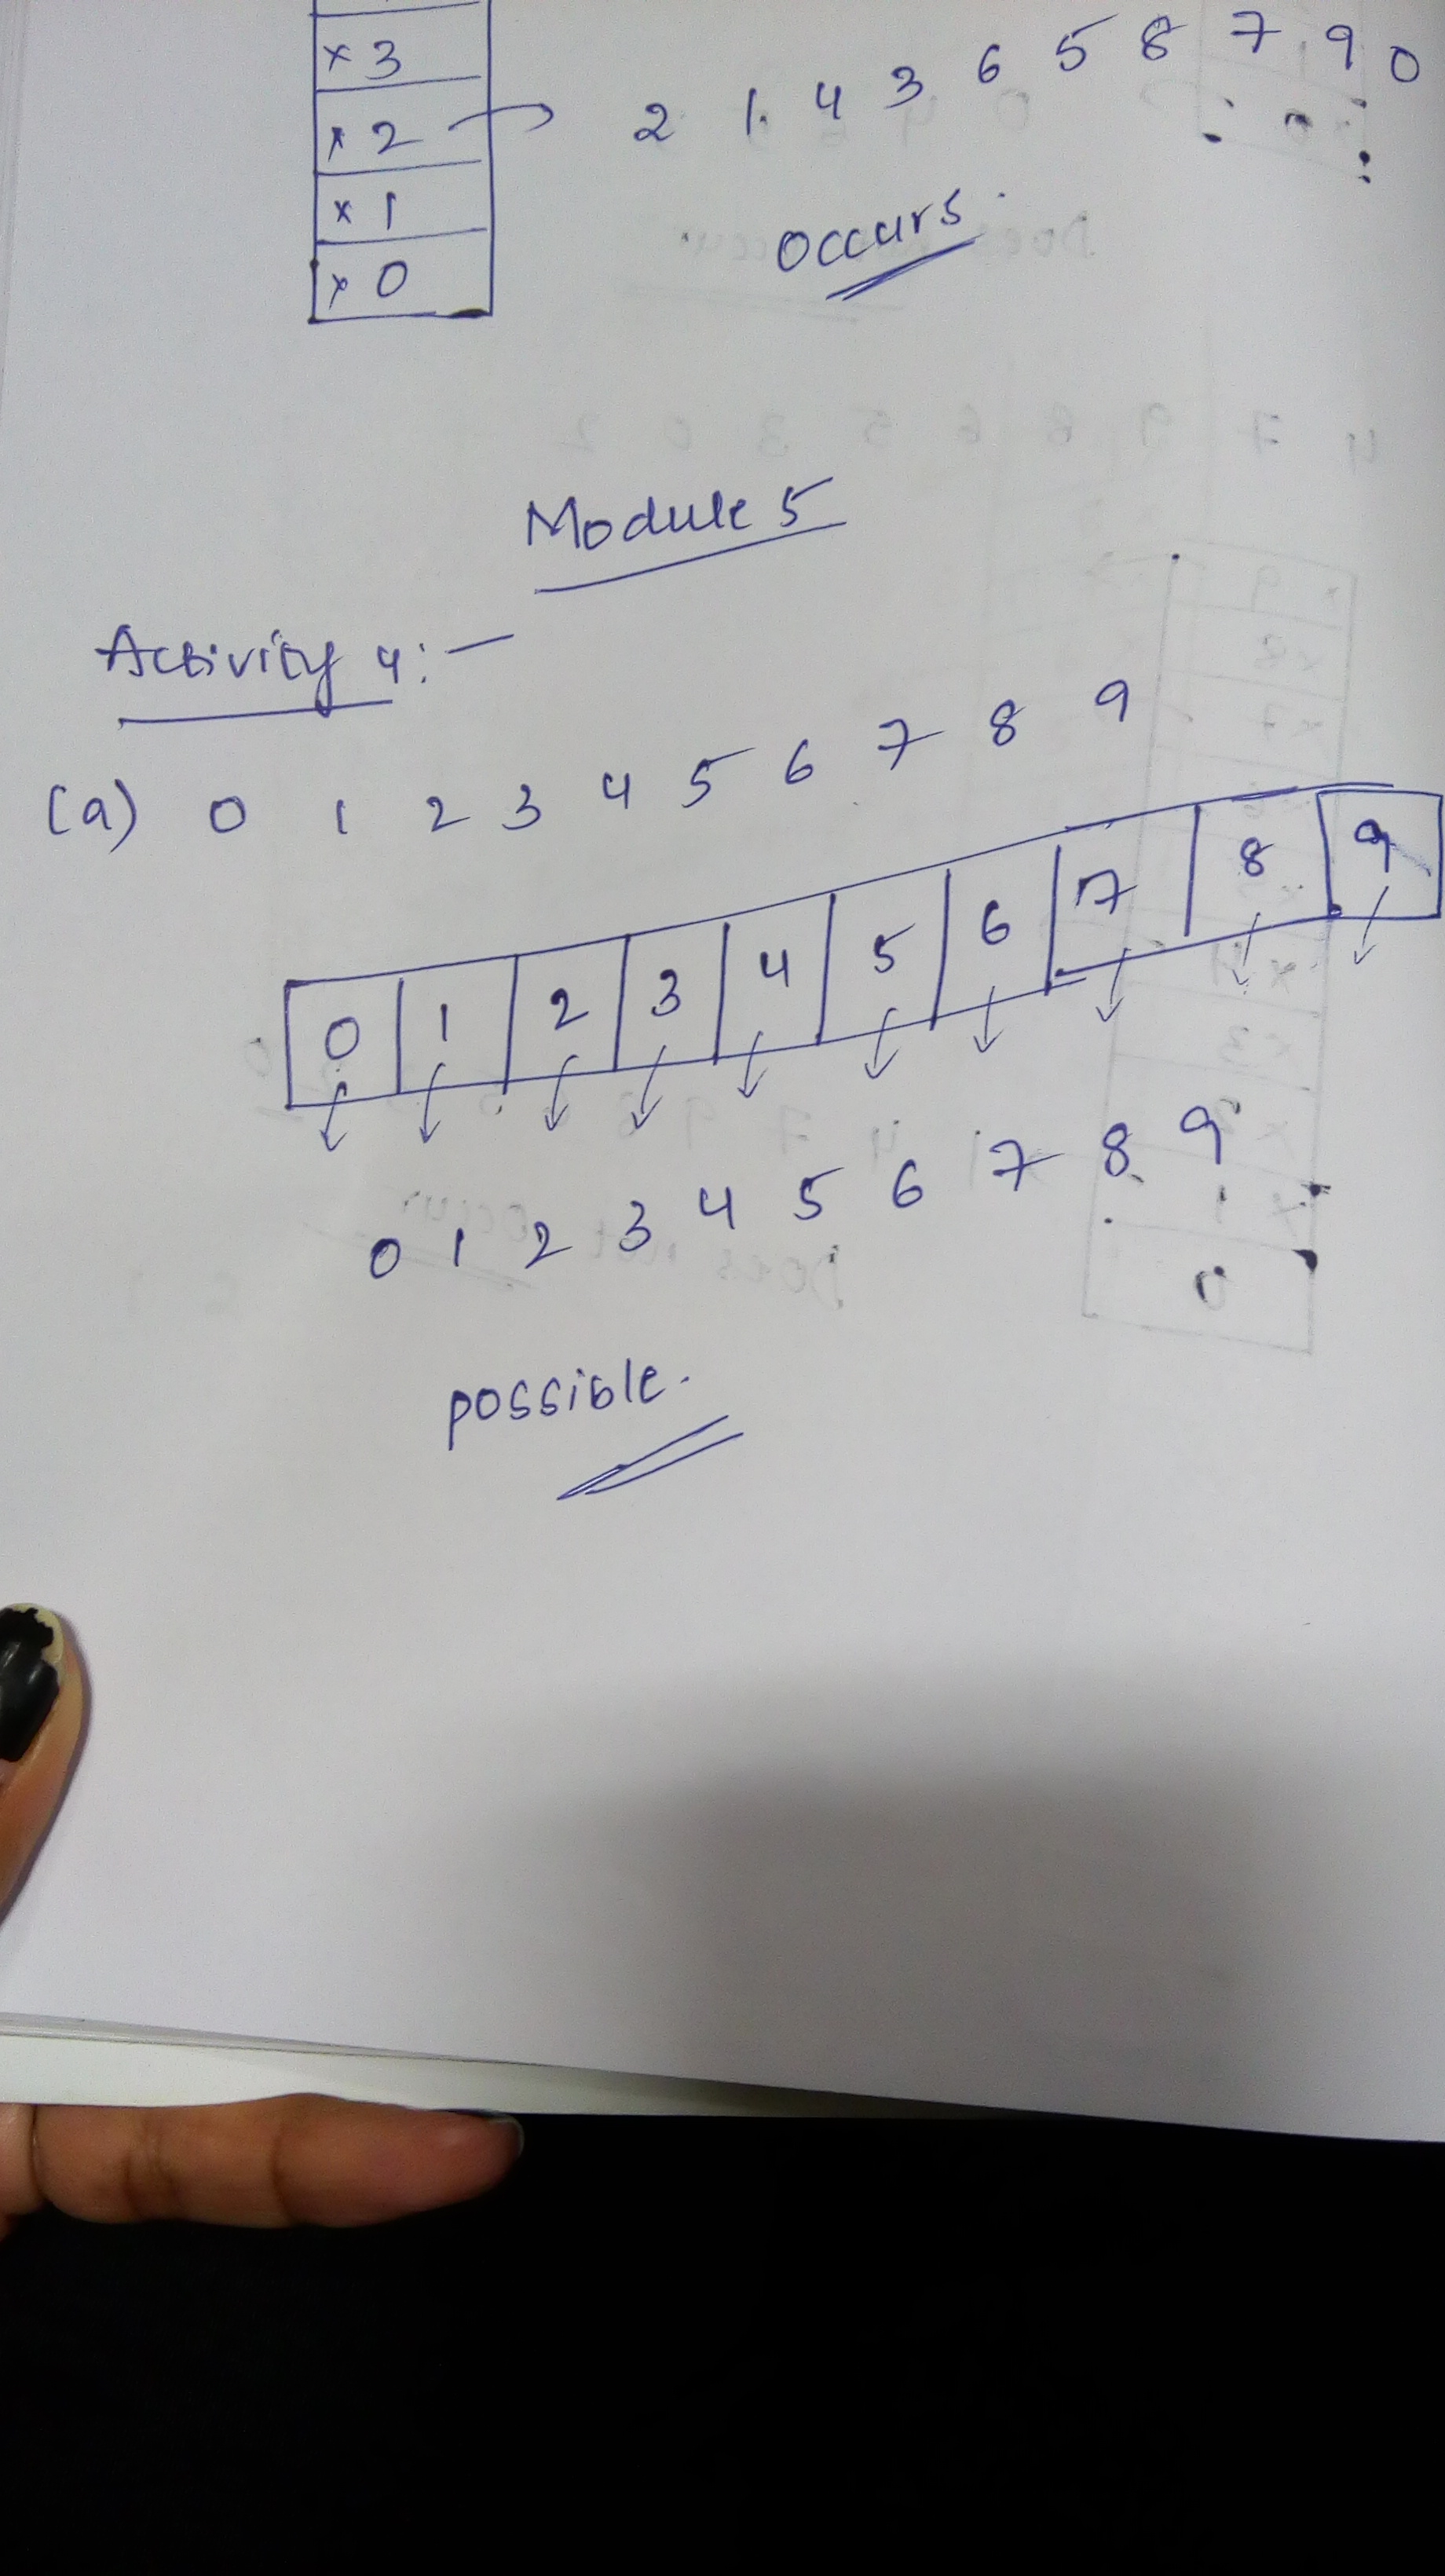 × 3
× 2 → 2 1 4 3 6 5 8 7 9 0
× 1
occurs.
× 0
Module 5
Activity 4:-
(a) 0 1 2 3 4 5 6 7 8 9
0 1 2 3 4 5 6 7 8 9
0 1 2 3 4 5 6 7 8 9
possible.